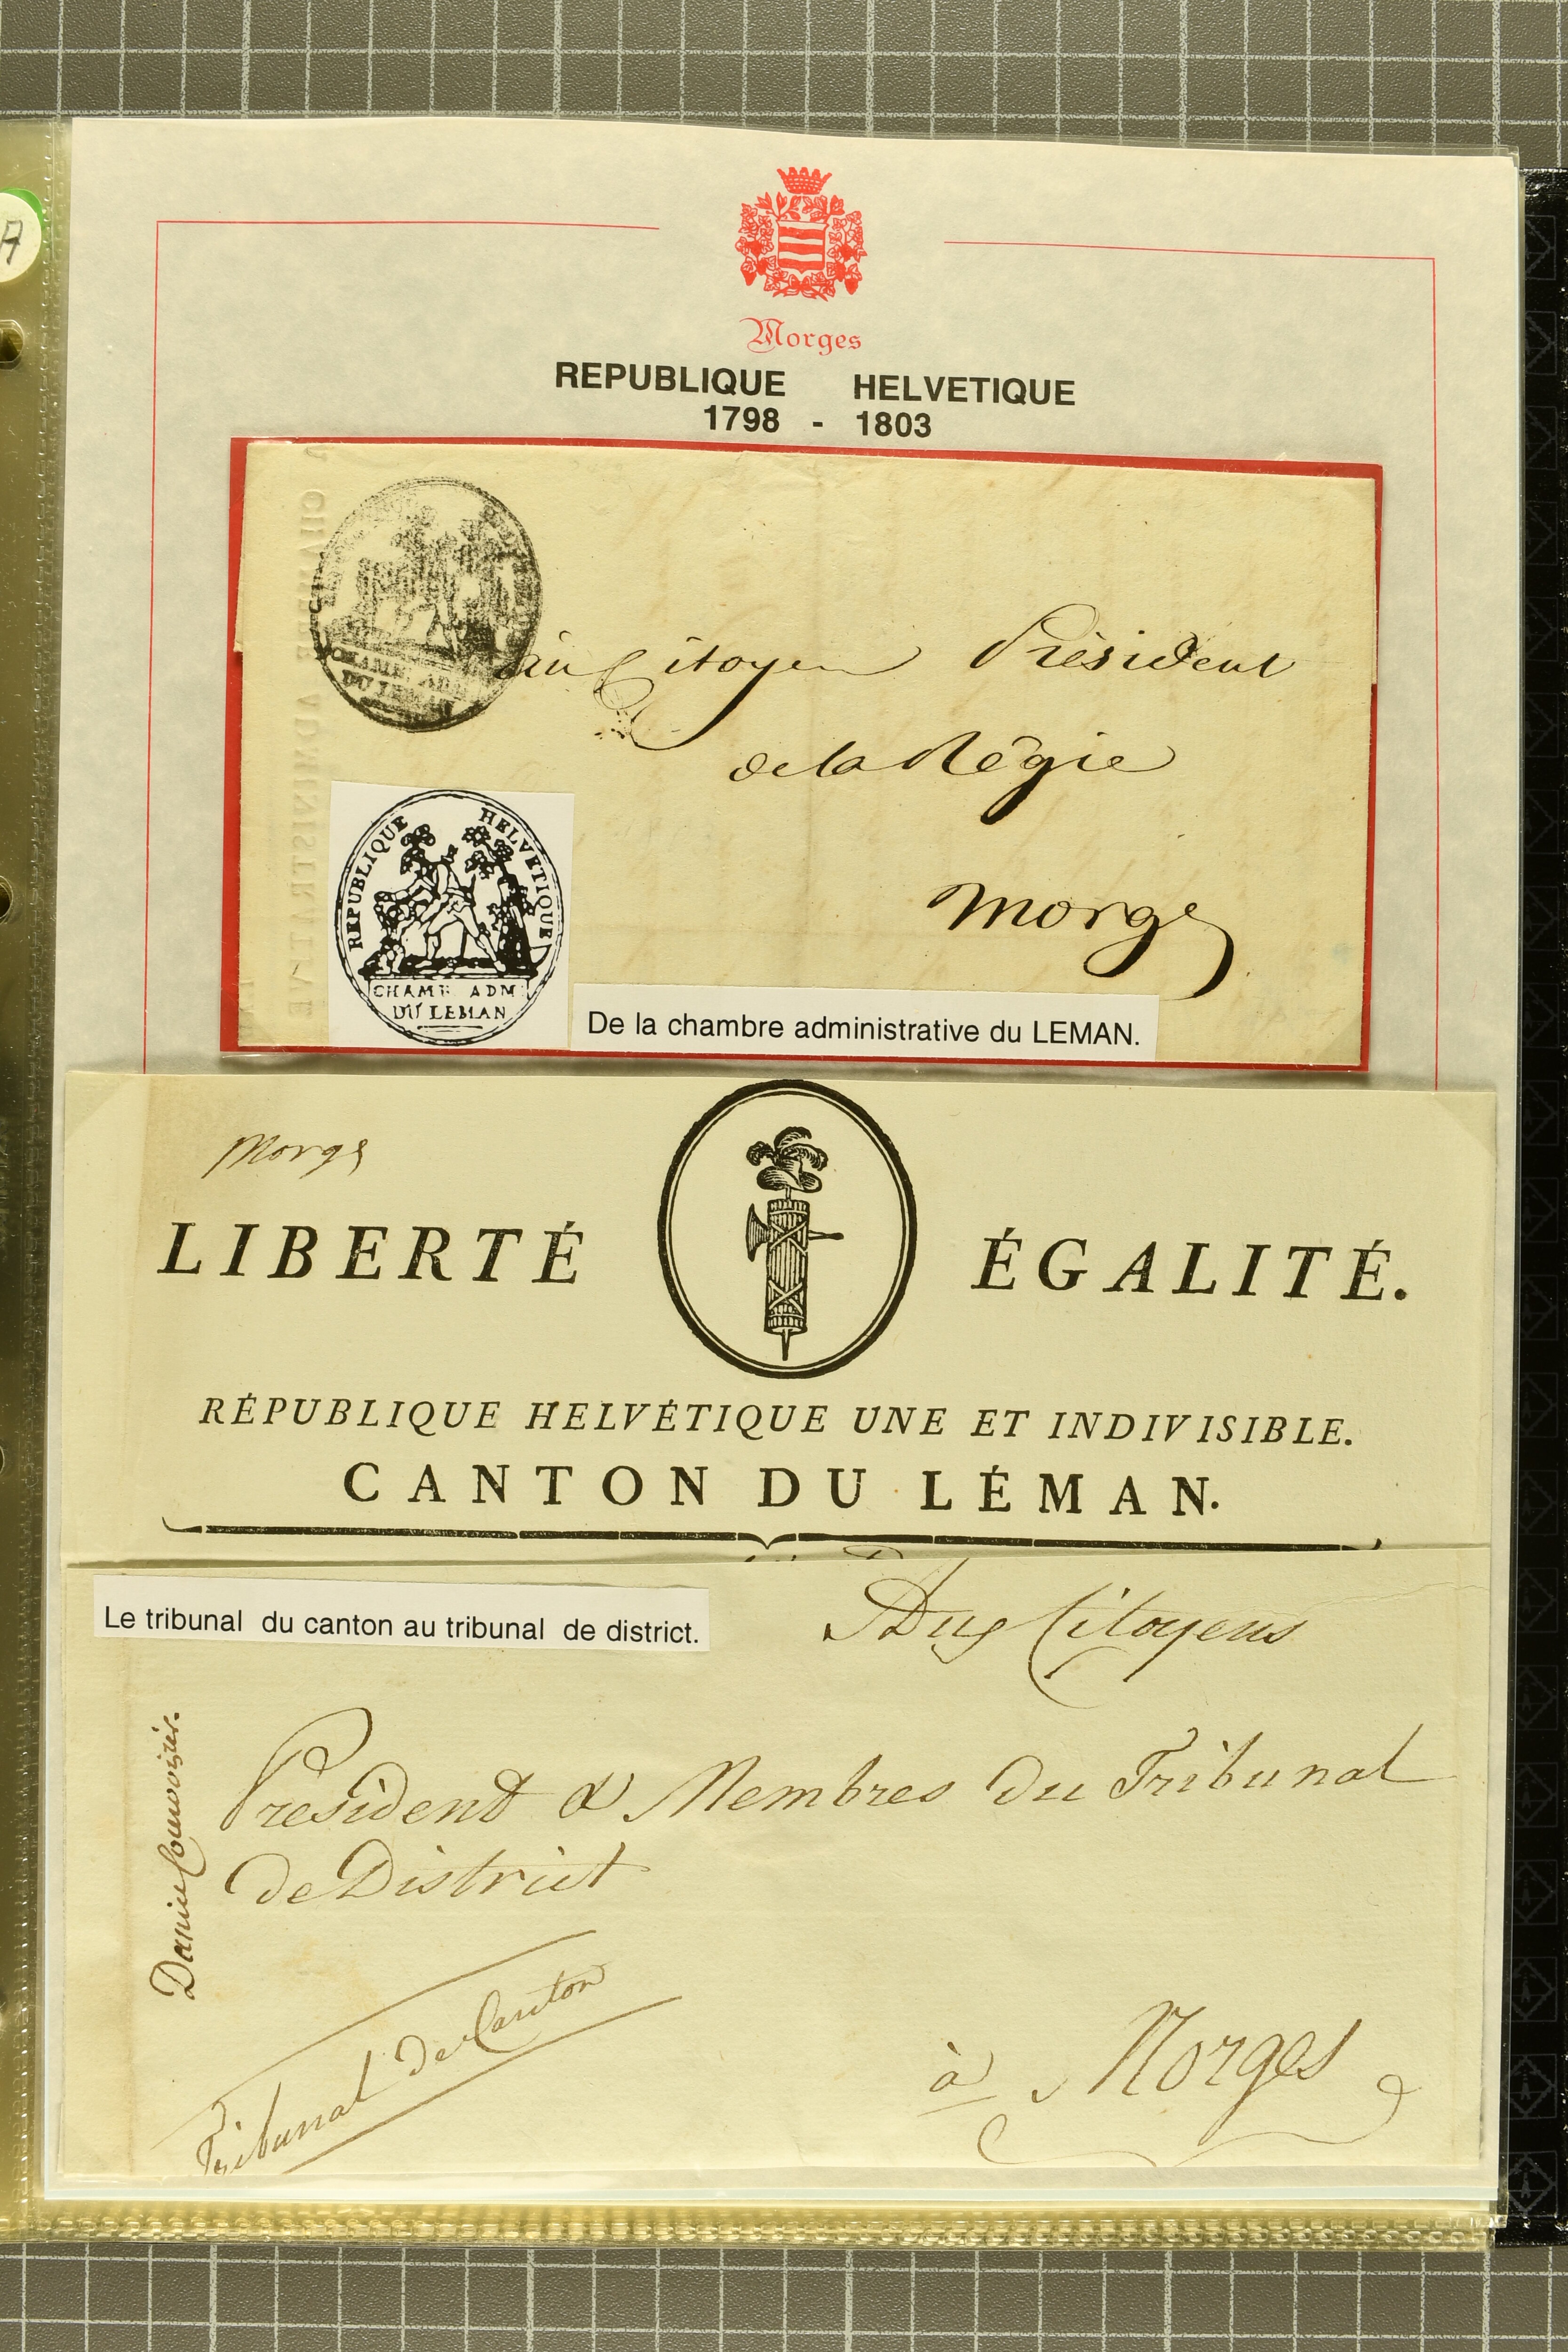 A
Morges
REPUBLIQUE HELVETIQUE
1798 - 1803
CHAMB. ADM.
DU LEMAN
au Citoyen Président
de la Régie
Morges
CHAMBRE ADMINISTRATIVE
REPUBLIQUE HELVETIQUE
CHAMB. ADM.
DU LEMAN
De la chambre administrative du LEMAN.
Morges
LIBERTÉ ÉGALITÉ.
RÉPUBLIQUE HELVÉTIQUE UNE ET INDIVISIBLE.
CANTON DU LÉMAN.
Le tribunal du canton au tribunal de district.
Aux Citoyens
President & Membres du Tribunal
de District
Daniel Courvoisier.
Tribunal de Canton
à Morges